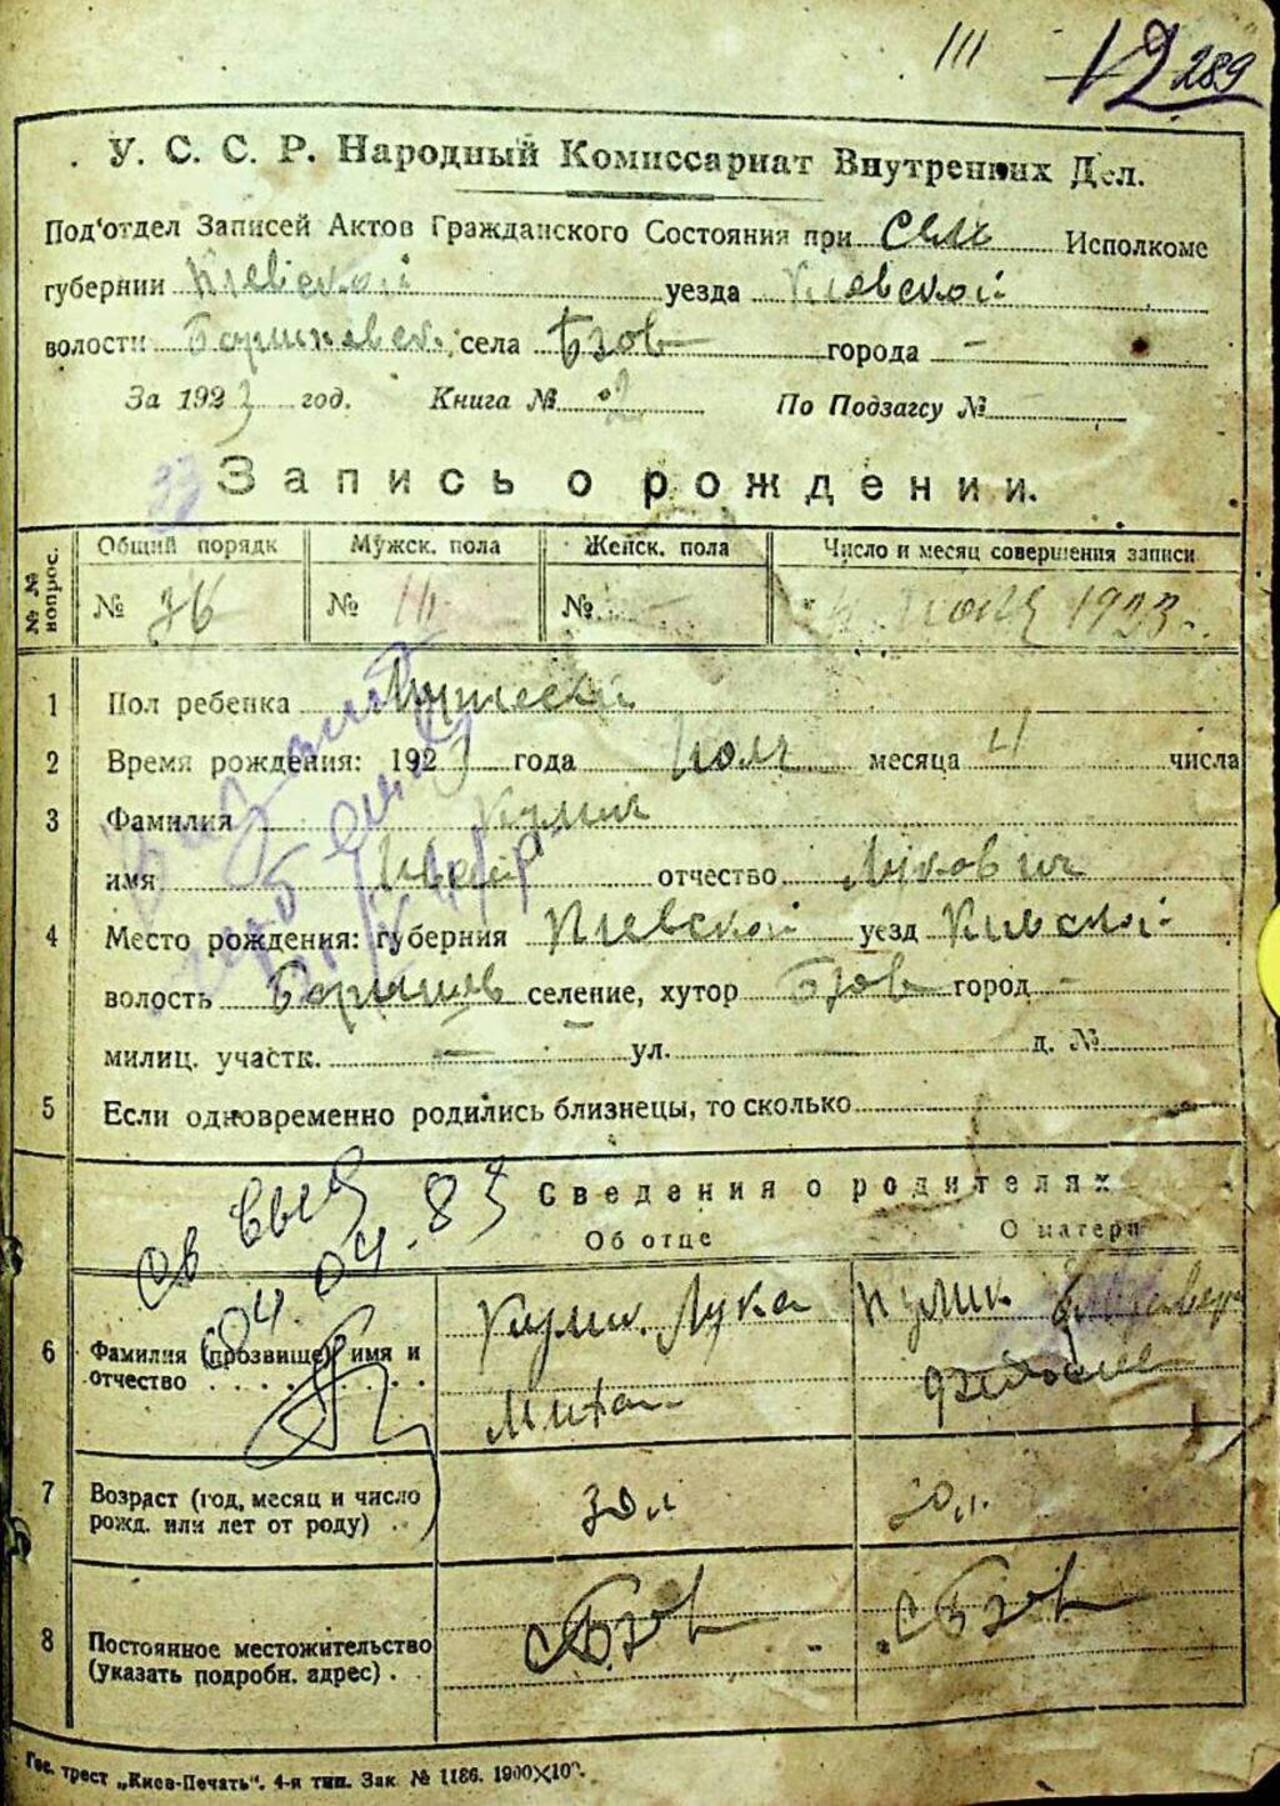 III 12 289
У. С. С. Р. Народный Комиссариат Внутренних Дел.
Под'отдел Записей Актов Гражданского Состояния при Сель Исполкоме
губернии Киевской уезда Киевской
волости села Бзов города -
За 1923 год. Книга № 2 По Подзагсу №
33 Запись о рождении.
№№ вопрос. Общий порядк Мужск. пола Женск. пола Число и месяц совершения записи
№ 36 № III № - 1923.
1 Пол ребенка Мужеский
2 Время рождения: 1923 года месяца 4 числа
3 Фамилия Кулик
имя Иван отчество Лукович
4 Место рождения: губерния Киевской уезд Киевской
волость селение, хутор Бзов город -
милиц. участк. — ул. — д. №
5 Если одновременно родились близнецы, то сколько
Сведения о родителях
Об отце О матери
св выд
04.04.83
6 Фамилия (прозвище) имя и отчество Кулик Лука Кулик
7 Возраст (год, месяц и число рожд. или лет от роду) 30 л 20 л.
8 Постоянное местожительство (указать подробн. адрес) с Бзов с Бзов
Гос. трест „Киев-Печать“. 4-я тип. Зак № 1186. 1900×10